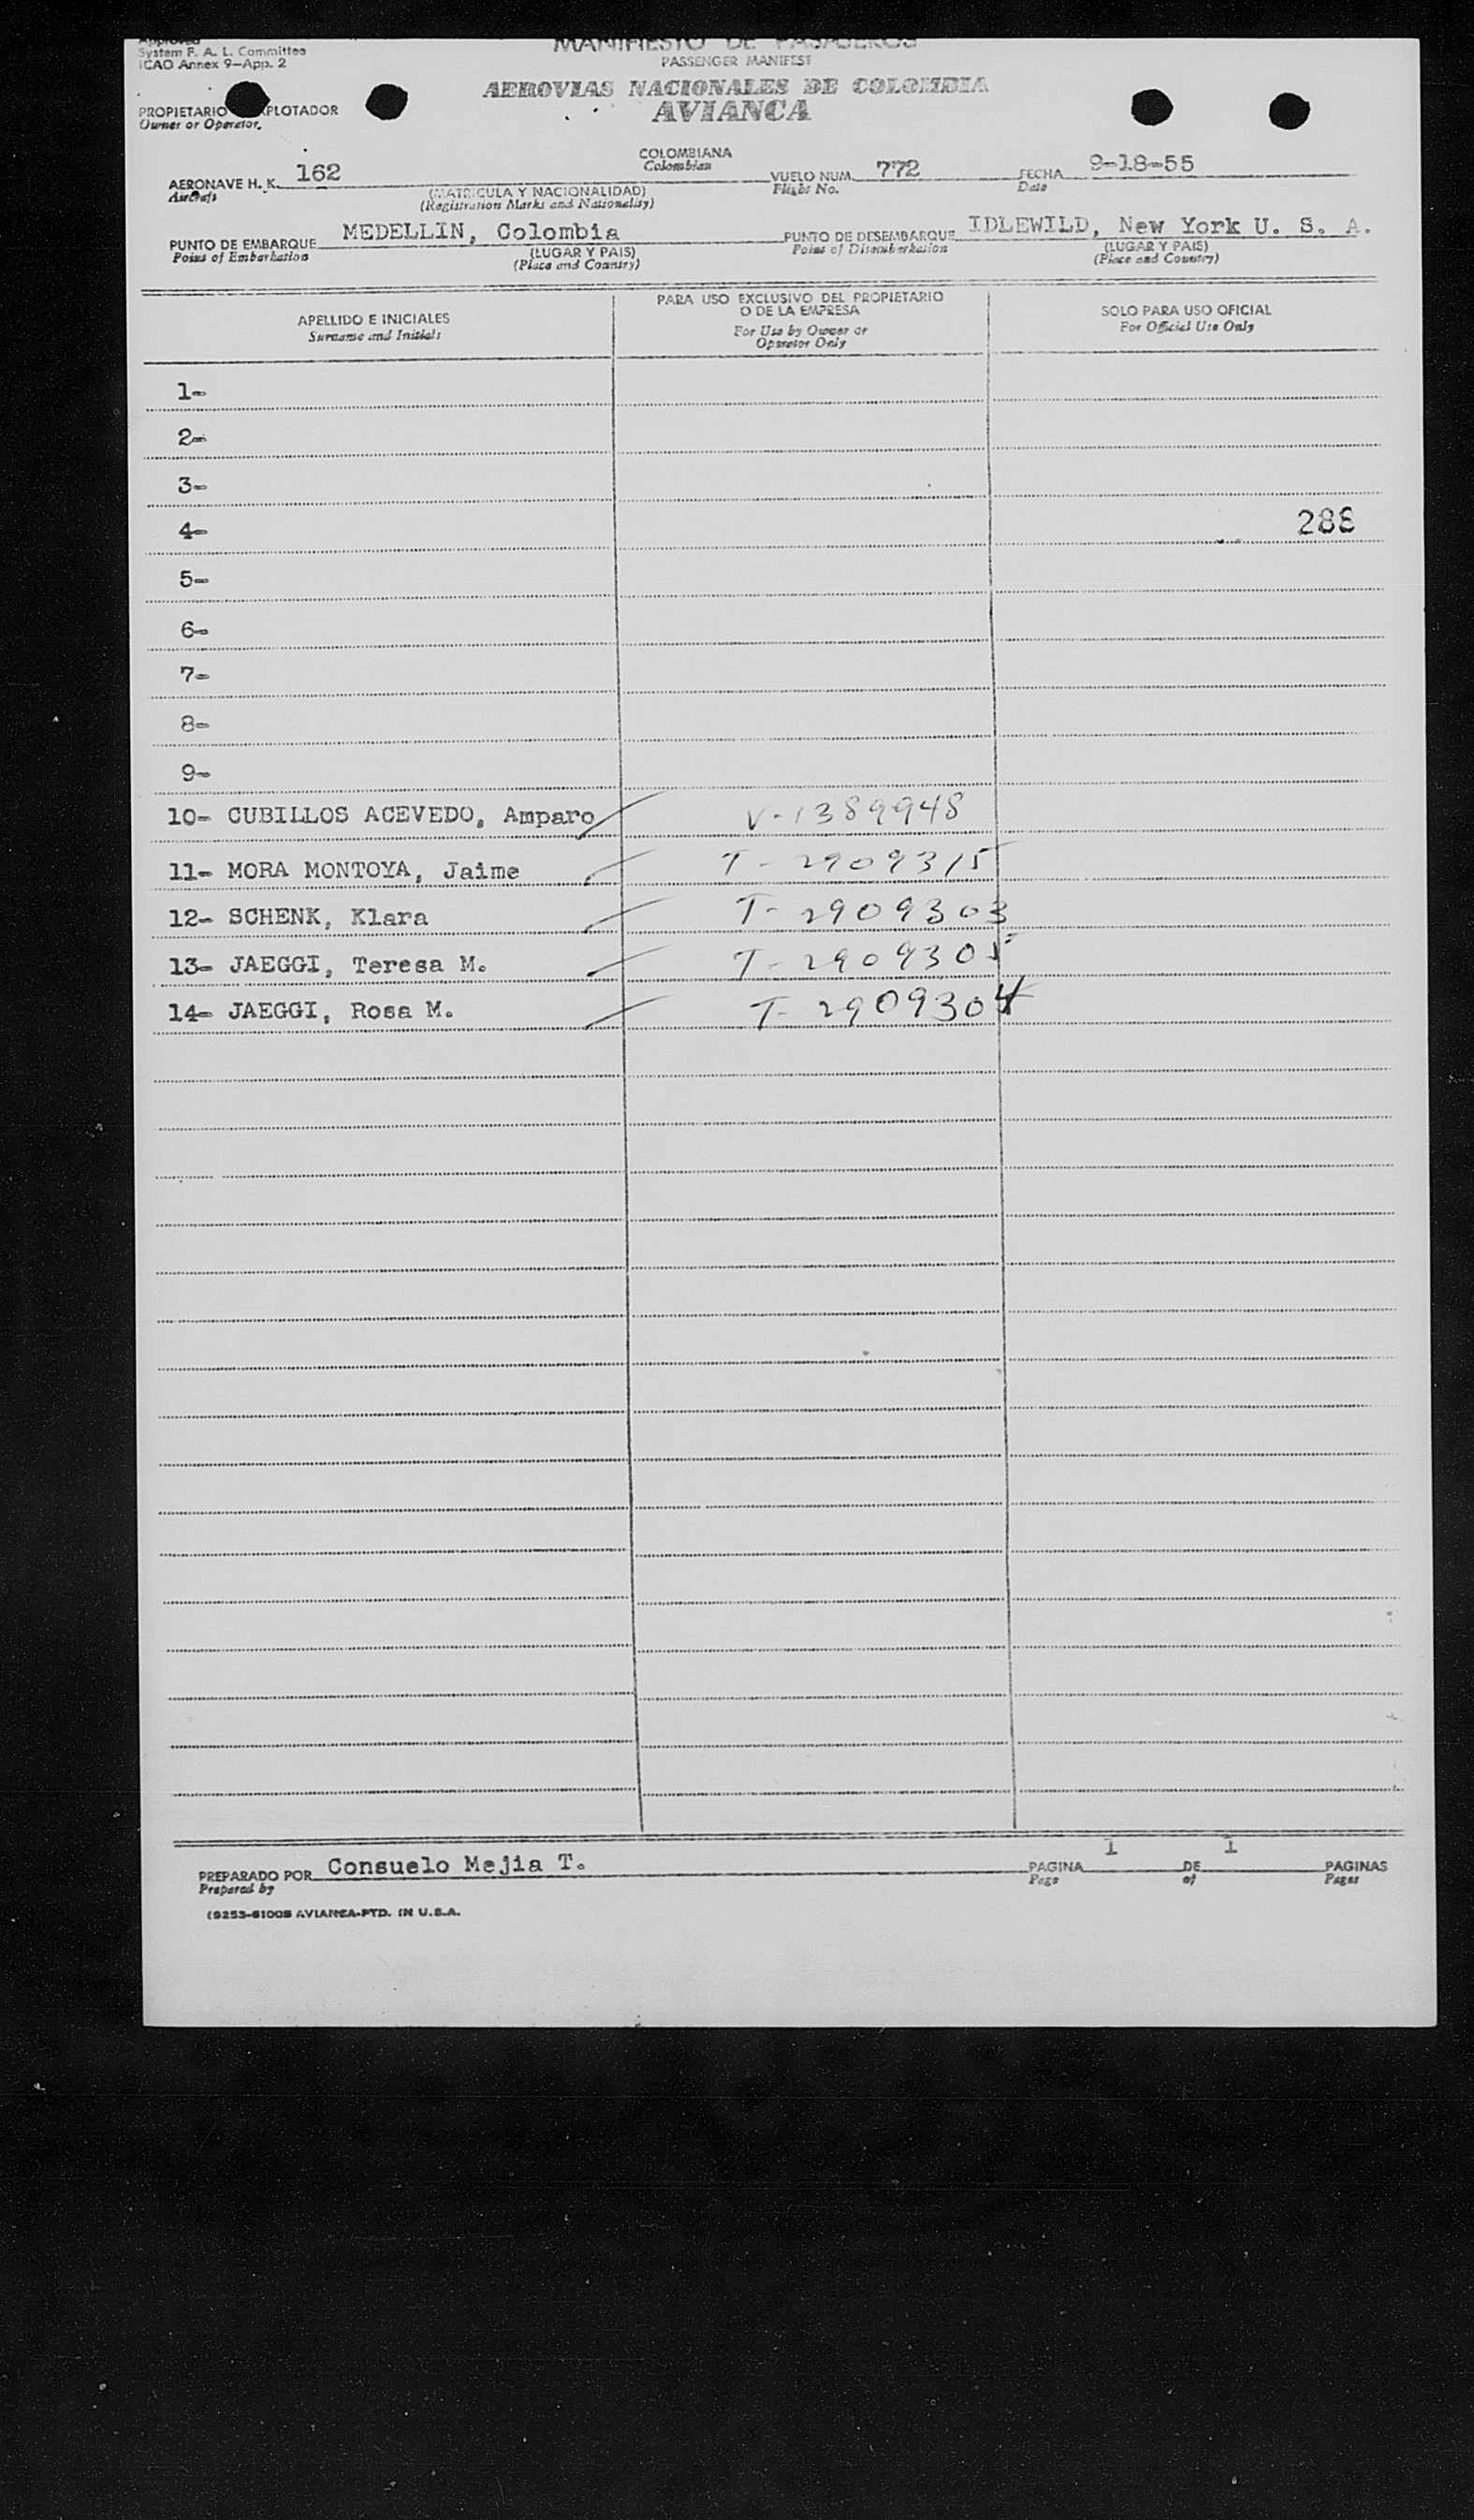 Approved
System F. A. L. Committee
ICAO Annex 9—App. 2
MANIFIESTO DE PASAJEROS
PASSENGER MANIFEST
AEROVIAS NACIONALES DE COLOMBIA
AVIANCA
PROPIETARIO XPLOTADOR
Owner or Operator.
AERONAVE H. K. 162
Aircraft
COLOMBIANA
Colombian
(MATRICULA Y NACIONALIDAD)
(Registration Marks and Nationality)
VUELO NUM. 772
Flight No.
FECHA 9-18-55
Date
PUNTO DE EMBARQUE MEDELLIN, Colombia
Point of Embarkation
(LUGAR Y PAIS)
(Place and Country)
PUNTO DE DESEMBARQUE IDLEWILD, New York U. S. A.
Point of Disembarkation
(LUGAR Y PAIS)
(Place and Country)
APELLIDO E INICIALES
Surname and Initials
PARA USO EXCLUSIVO DEL PROPIETARIO
O DE LA EMPRESA
For Use by Owner or
Operator Only
SOLO PARA USO OFICIAL
For Official Use Only
1-
2-
3-
4- 288
5-
6-
7-
8-
9-
10- CUBILLOS ACEVEDO, Amparo V-1389948
11- MORA MONTOYA, Jaime T-2909315
12- SCHENK, Klara T-2909303
13- JAEGGI, Teresa M. T-2909305
14- JAEGGI, Rosa M. T-2909304
PREPARADO POR Consuelo Mejia T.
Prepared by
PAGINA 1 DE 1 PAGINAS
Page of Pages
(9253-6100S AVIANCA-PTD. IN U.S.A.